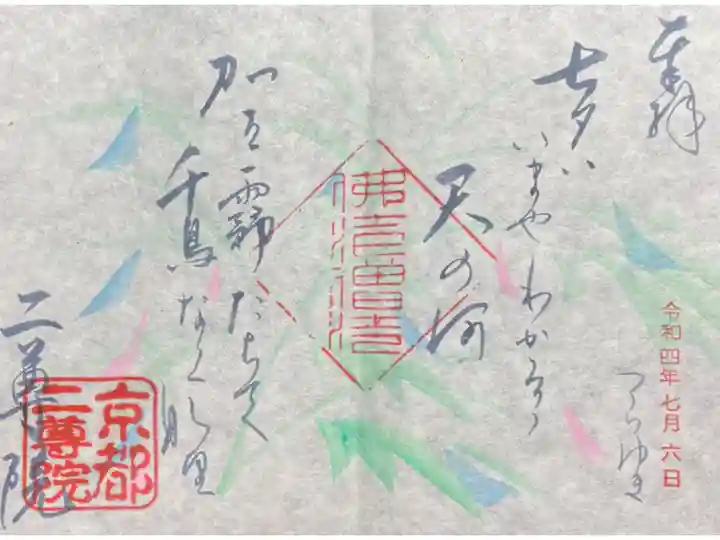 奉拝
七夕ハ
いまやわかるゝ
天の河
霧たちて
千鳥なく
つらゆき
令和四年七月六日
二尊院
京都
二尊院